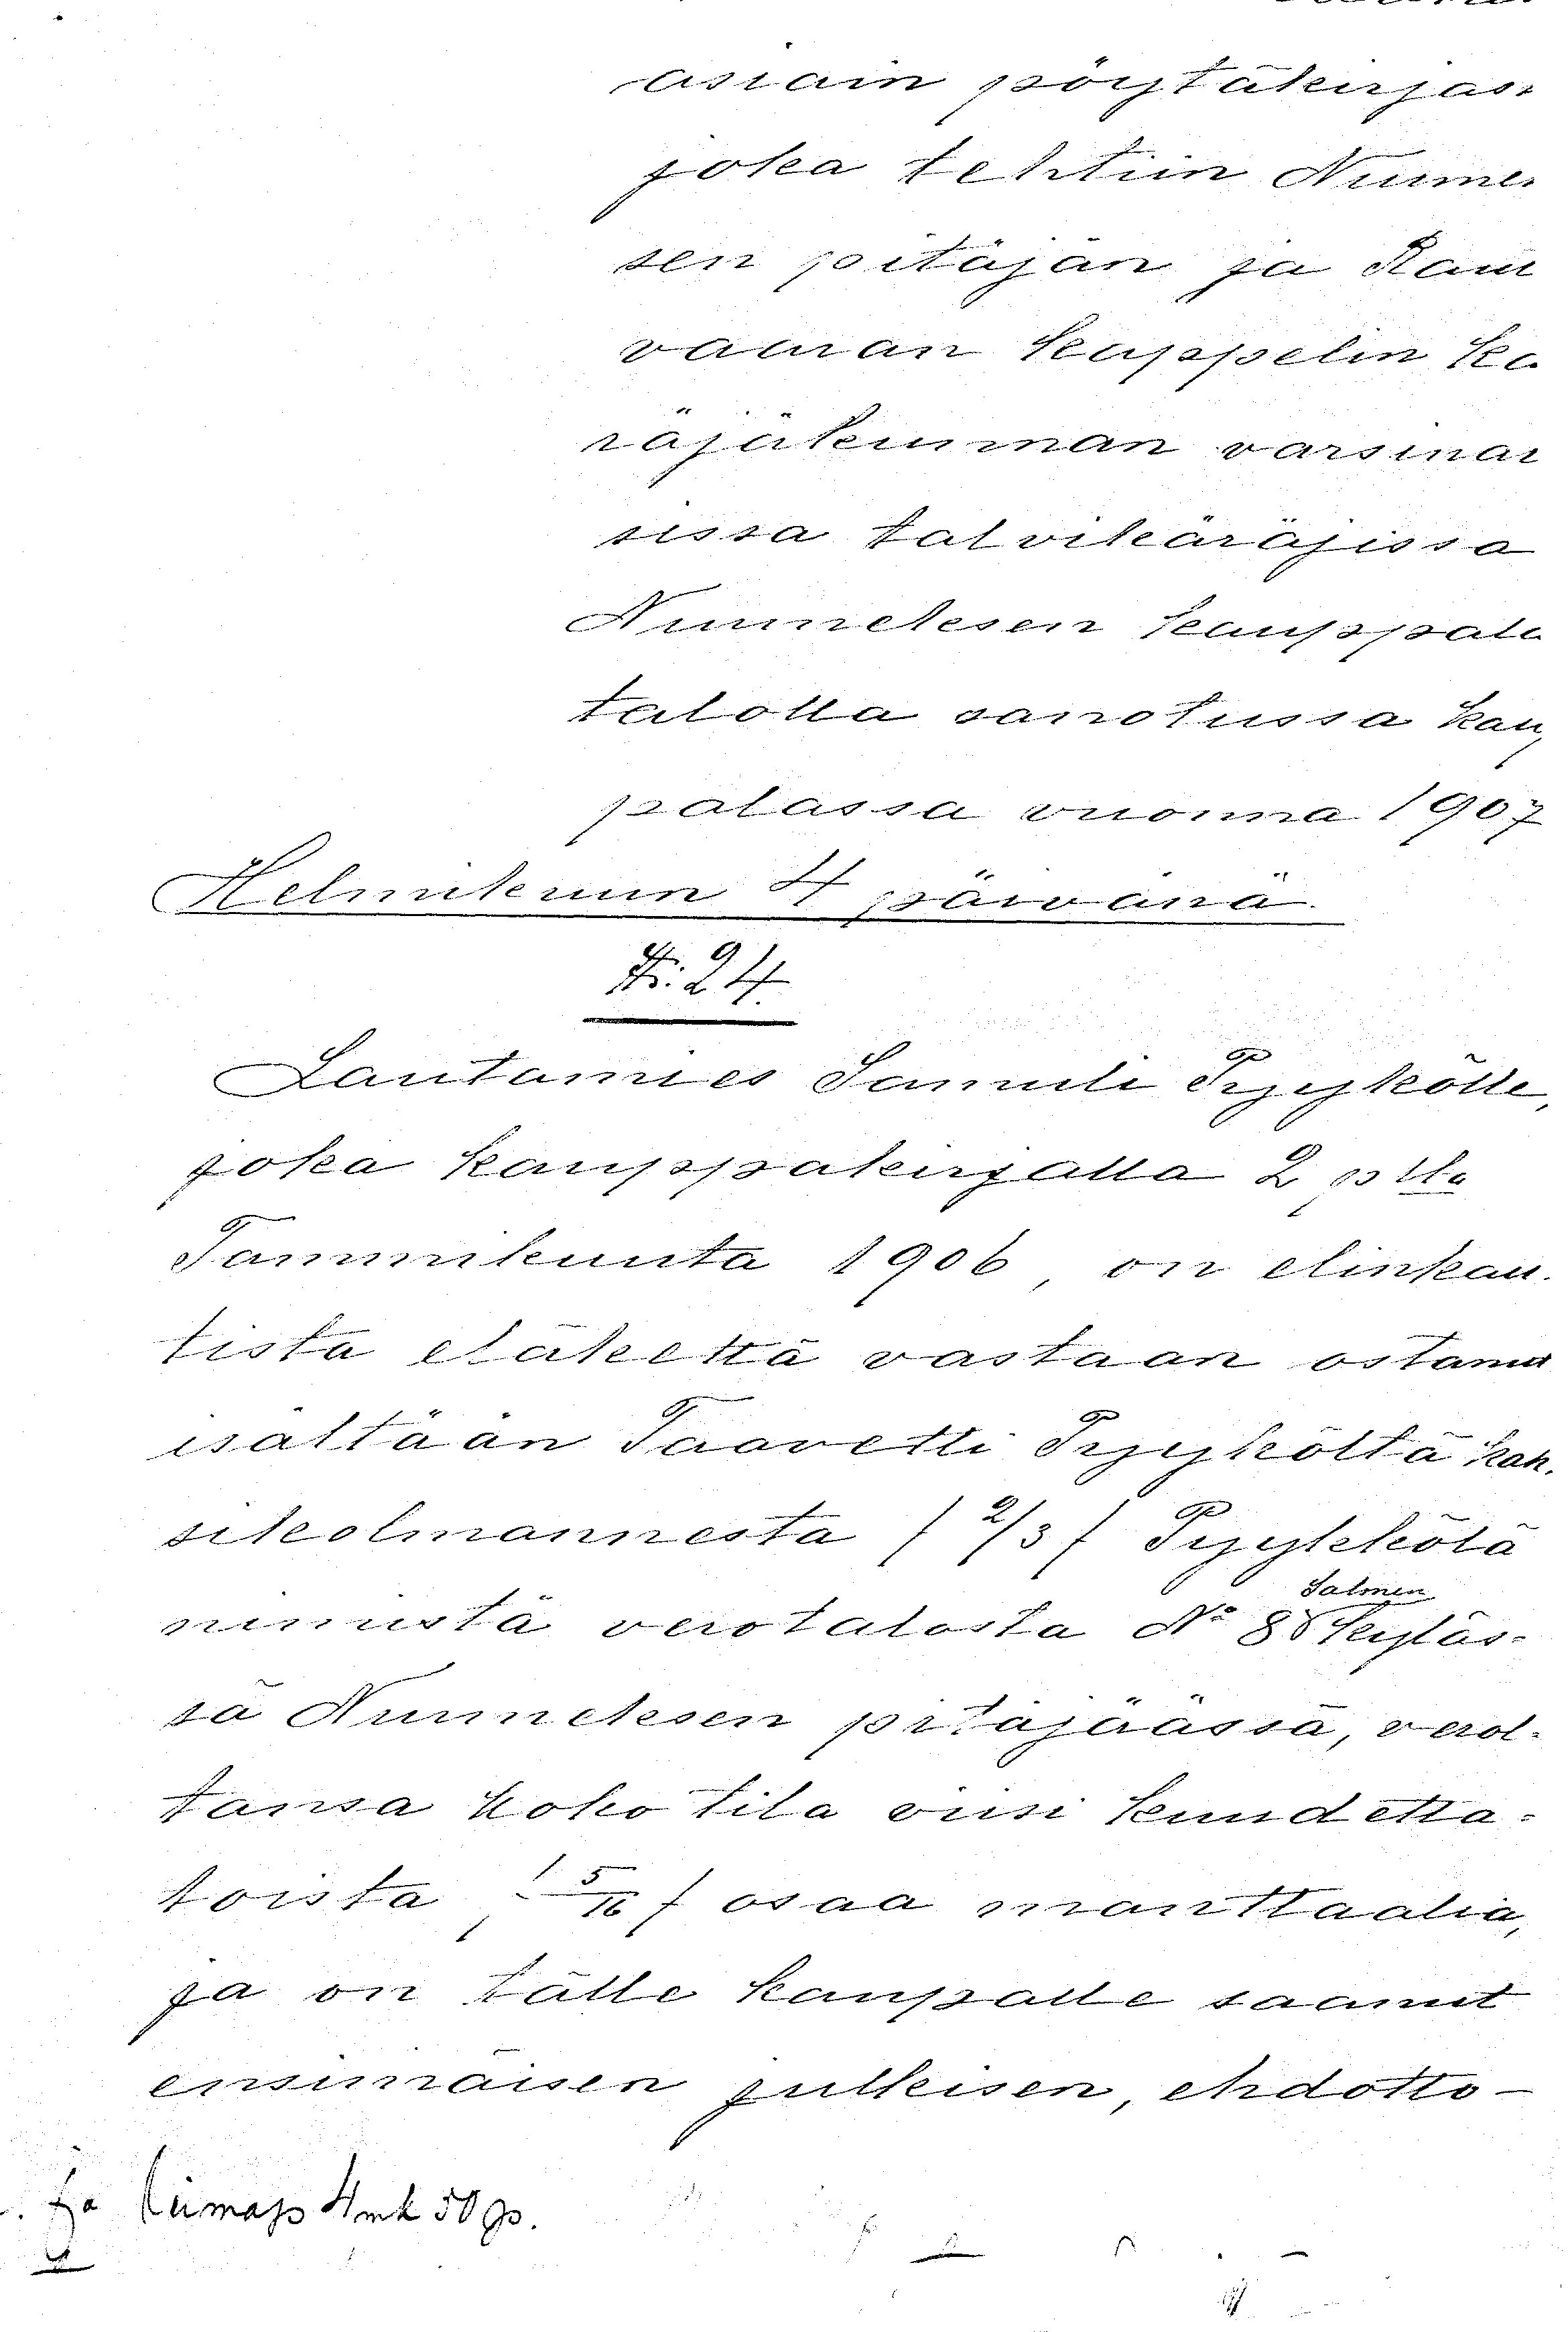 asiain pöytäkirjas
joka tehtiin Nurmek
sen pitäjän ja Rau
vaaran kappelin kä
räjäkunnan varsinai
sissa talvikäräjissa
Nurmeksen kauppala
talolla sanotussa kaup
palassa vuonna 1907
Helmikuun 4 päivänä.
§: 24.
Lautamies Samuli Pyykölle,
joka kauppakirjalla 2 p:ltä
Tammikuuta 1906, on elinkau-
tista eläkettä vastaan ostanut
isältään Taavetti Pyyköltä kah-
sikolmannesta / 2/3 / Pyykkölä
Salmen
nimistä verotalosta No 8 kyläs-
sä Nurmeksen pitäjäässä, verol-
tansa koko tila viisi kuudetta-
toista / 5/16 / osaa manttaalia,
ja on tälle kaupalle saanut
ensimäisen julkisen, ehdotto-
Leimap 4mk 50 p.